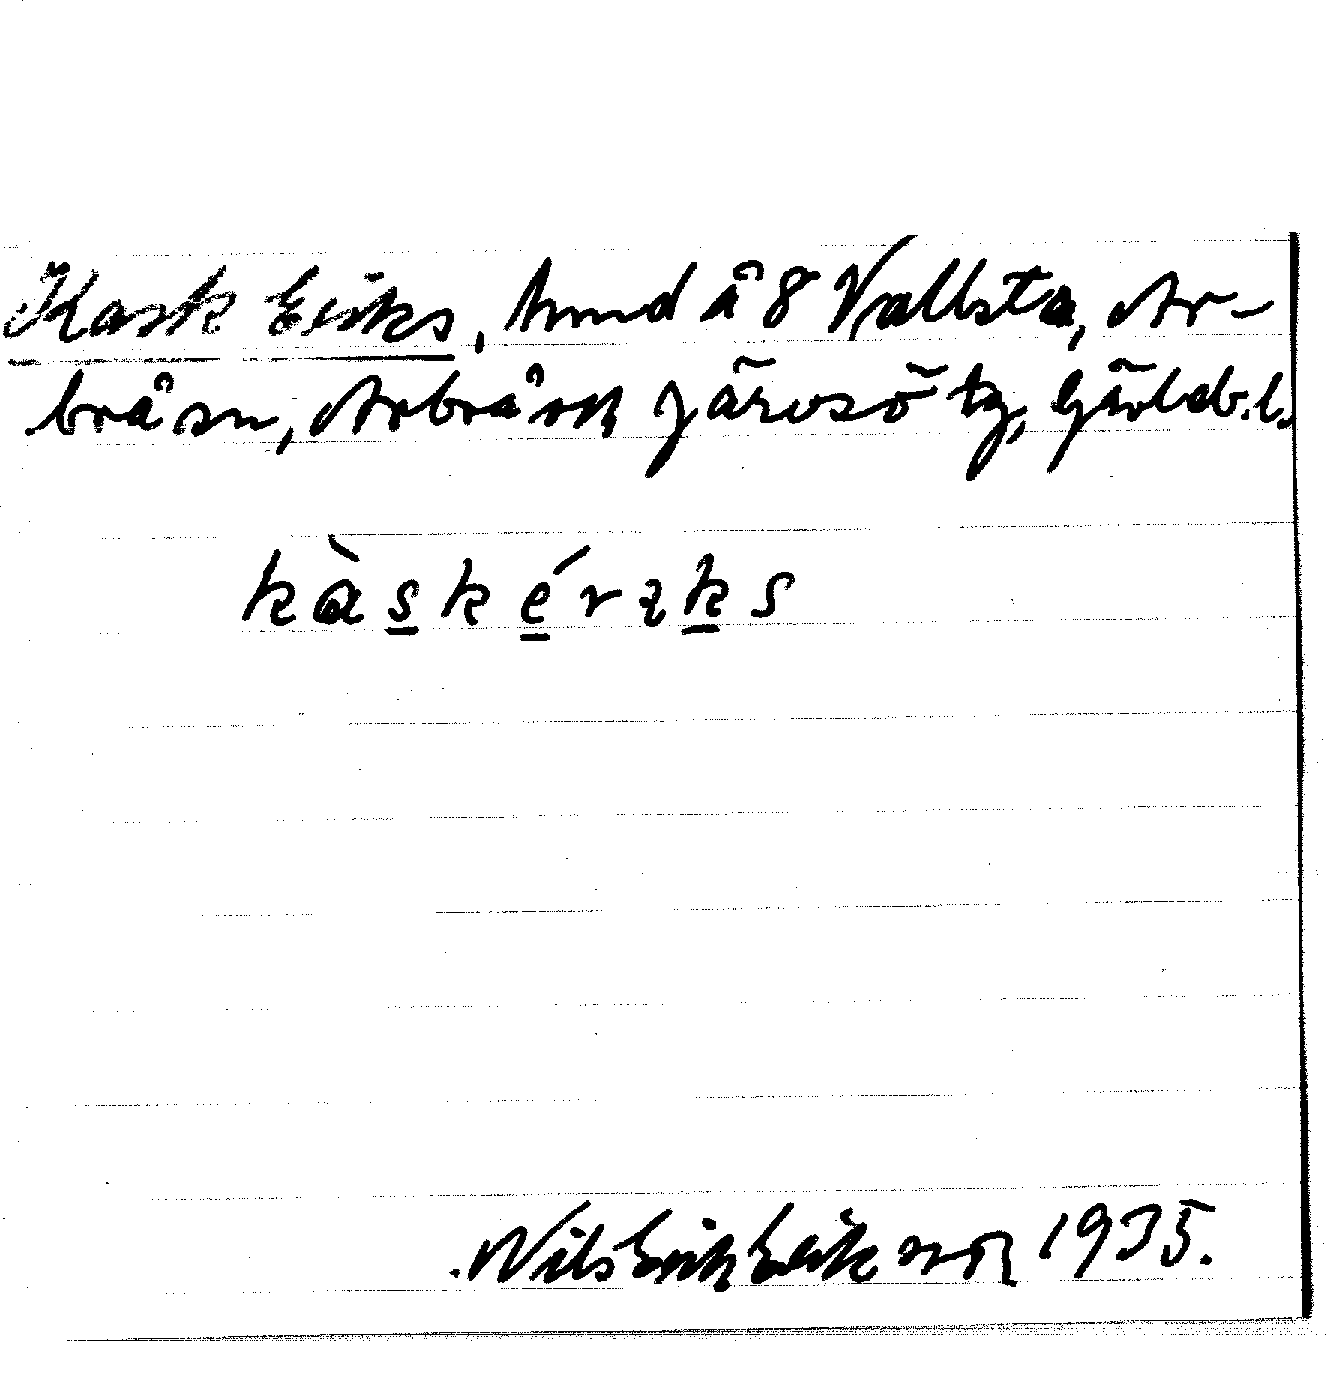 Kask Eriks, hmd å 8 Vallsta, Ar-
brå sn, Arbrå och Järvsö tg, Gävleb. l.
kàskérɪks
Nils Erik Eriksson 1935.